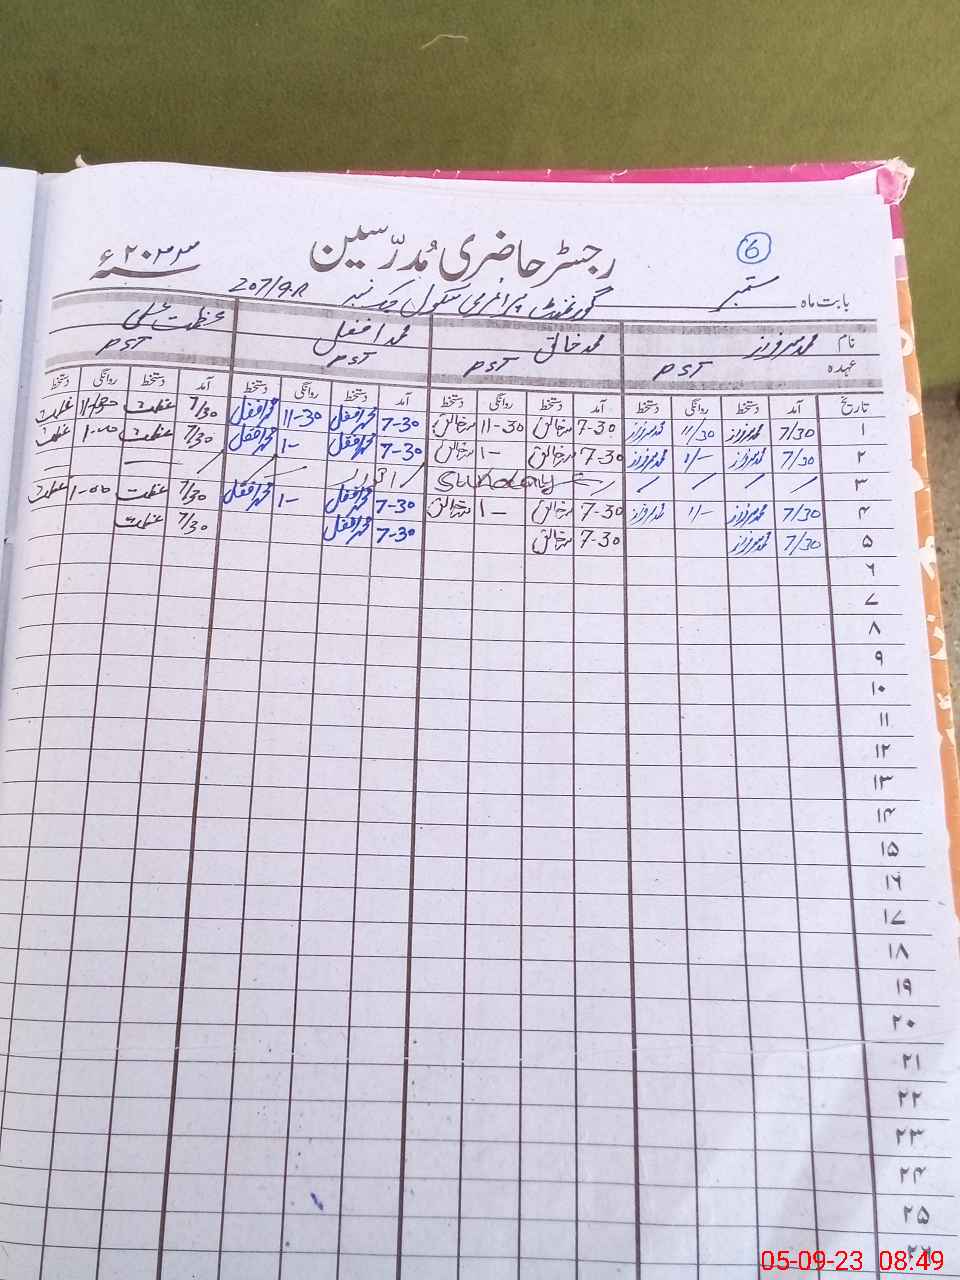 6
رجسٹر حاضری مُدرّسین
سنہ ۲۰۲۳ء
بابت ماہ ستمبر گورنمنٹ پرائمری سکول چک نمبر 207/9.R
نام محمد سرفراز محمد خالق محمد افضل عظمت علی
عہدہ PST PST PST PST
تاریخ آمد دستخط روانگی دستخط آمد دستخط روانگی دستخط آمد دستخط روانگی دستخط آمد دستخط روانگی دستخط
۱ 7/30 محمد سرفراز 11/30 محمد سرفراز 7-30 محمد خالق 11-30 محمد خالق 7-30 محمد افضل 11-30 محمد افضل 7/30 عظمت 11-30 عظمت
۲ 7/30 محمد سرفراز 1/- محمد سرفراز 7-30 محمد خالق 1- محمد خالق 7-30 محمد افضل 1- محمد افضل 7/30 عظمت 1-00 عظمت
۳ Sunday اتوار
۴ 7/30 محمد سرفراز 1/- محمد سرفراز 7-30 محمد خالق 1- محمد خالق 7-30 محمد افضل 1- محمد افضل 7/30 عظمت 1-00 عظمت
۵ 7/30 محمد سرفراز 7-30 محمد خالق 7-30 محمد افضل 7/30 عظمت
۶
۷
۸
۹
۱۰
۱۱
۱۲
۱۳
۱۴
۱۵
۱۶
۱۷
۱۸
۱۹
۲۰
۲۱
۲۲
۲۳
۲۴
۲۵
۲۶
05-09-23 08:49